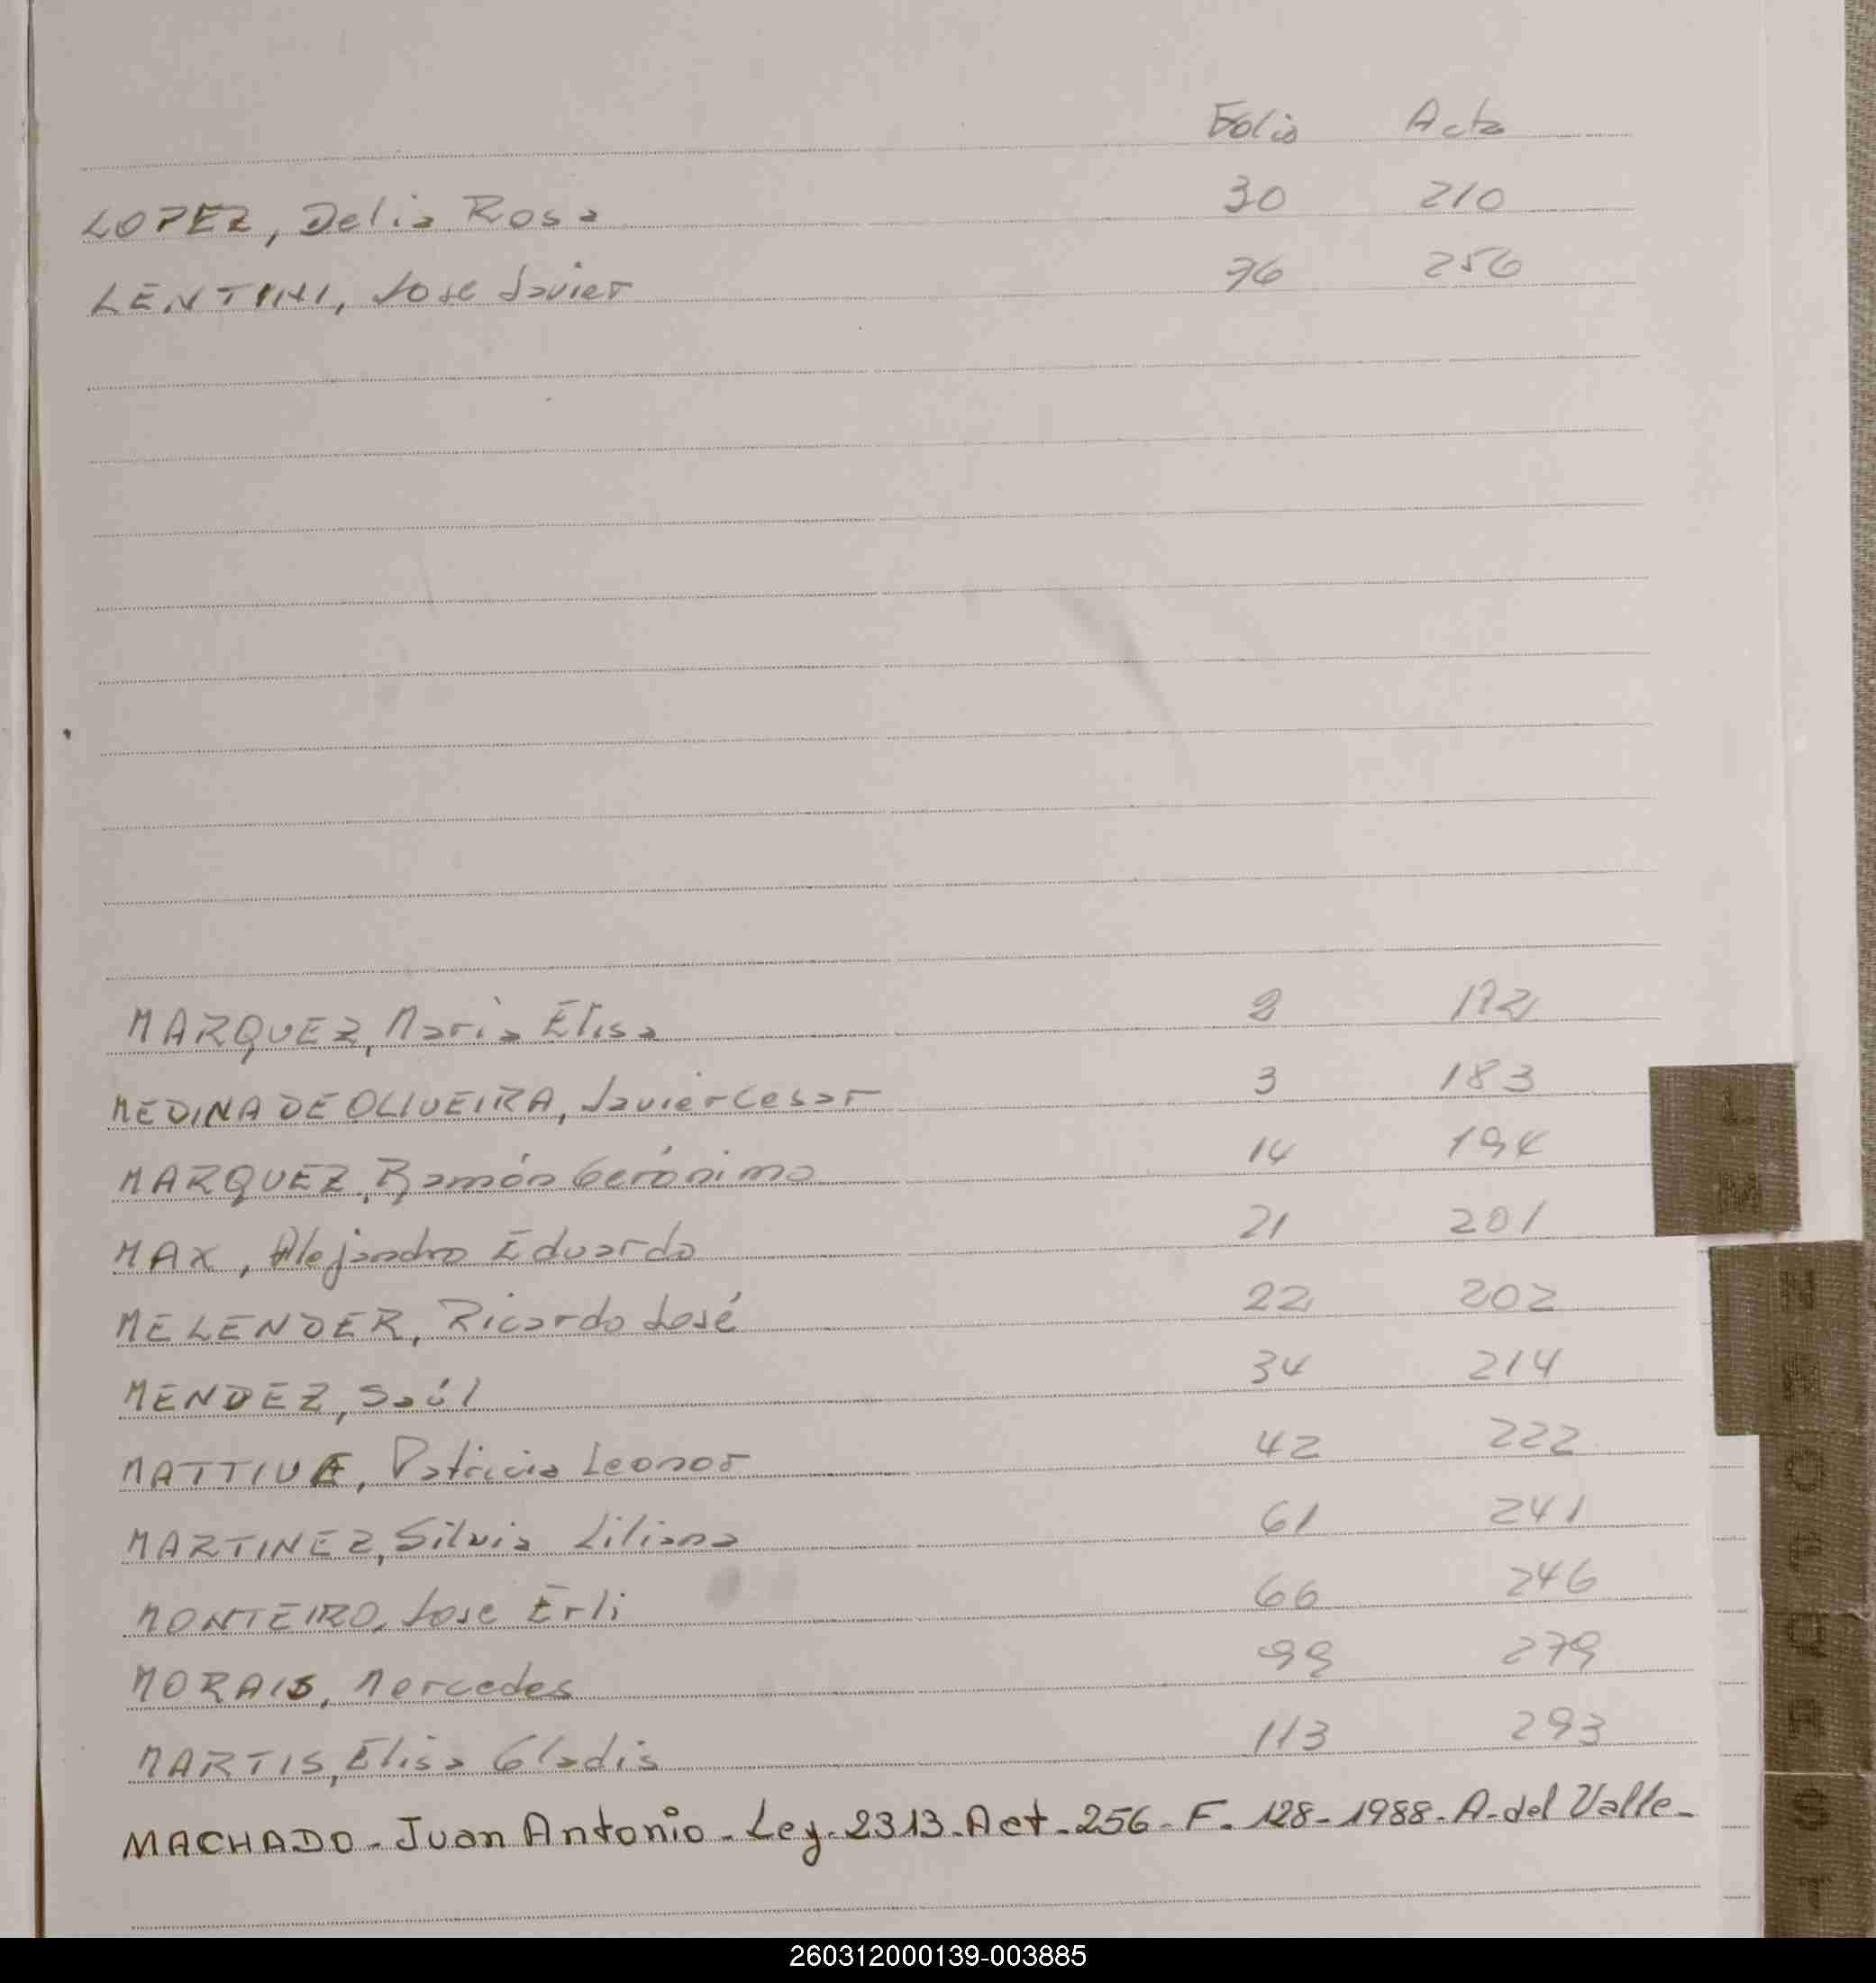 Folio Acta
LOPEZ, Delia Rosa 30 210
LENTINI, Jose Javier 76 256
MARQUEZ, Maria Elisa 2 182
MEDINA DE OLIVEIRA, Javier Cesar 3 183
MARQUEZ, Ramón Gerónimo 14 194
MAX, Alejandro Eduardo 21 201
MELENDER, Ricardo José 22 202
MENDEZ, Saúl 34 214
Patricia Leonor 42 222
MARTINEZ, Silvia Liliana 61 241
MONTEIRO, Jose Erli 66 246
MORAIS, Mercedes 99 279
MARTIS, Elisa Gladis 113 293
MACHADO - Juan Antonio - Ley - 2313 - Act - 256 - F. 128 - 1988 - A. del Valle -
L
M
260312000139-003885